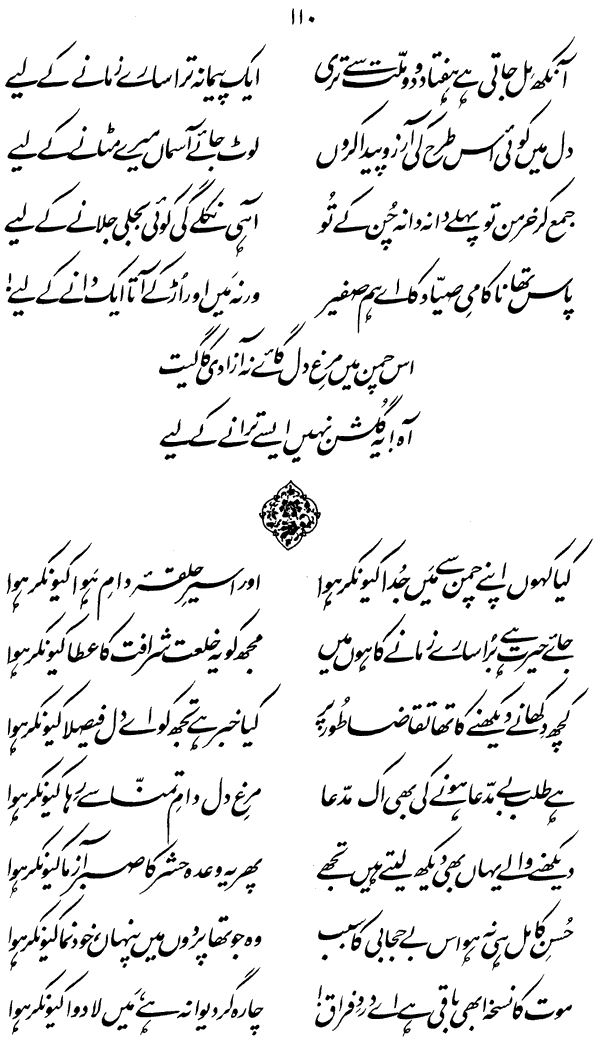 ۱۱۰
آنکھ مل جاتی ہے ہفتاد و دو ملّت سے تری ایک پیمانہ ترا سارے زمانے کے لیے
دل میں کوئی اس طرح کی آرزو پیدا کروں لوٹ جائے آسماں میرے مٹانے کے لیے
جمع کر خرمن تو پہلے دانہ دانہ چُن کے تُو آ ہی نکلے گی کوئی بجلی جلانے کے لیے
پاس تھا ناکامیِ صیّاد کا اے ہم صفیر ورنہ مَیں اور اُڑ کے آتا ایک دانے کے لیے!
اس چمن میں مرغِ دل گائے نہ آزادی کا گیت
آہ! یہ گُلشن نہیں ایسے ترانے کے لیے
کیا کہوں اپنے چمن سے مَیں جُدا کیونکر ہوا اور اسیرِ حلقۂ دام ہَوا کیونکر ہوا
جائے حیرت ہے بُرا سارے زمانے کا ہوں میں مجھ کو یہ خلعت شرافت کا عطا کیونکر ہوا
کچھ دکھانے دیکھنے کا تھا تقاضا طُور پر کیا خبر ہے تجھ کو اے دل فیصلا کیونکر ہوا
ہے طلب بے مدّعا ہونے کی بھی اک مدّعا مرغِ دل دامِ تمنّا سے رِہا کیونکر ہوا
دیکھنے والے یہاں بھی دیکھ لیتے ہیں تجھے پھر یہ وعدہ حشر کا صبر آزما کیونکر ہوا
حُسنِ کامل ہی نہ ہو اس بے حجابی کا سبب وہ جو تھا پردوں میں پنہاں، خود نما کیونکر ہوا
موت کا نسخہ ابھی باقی ہے اے دردِ فراق! چارہ گر دیوانہ ہے، مَیں لا دوا کیونکر ہوا